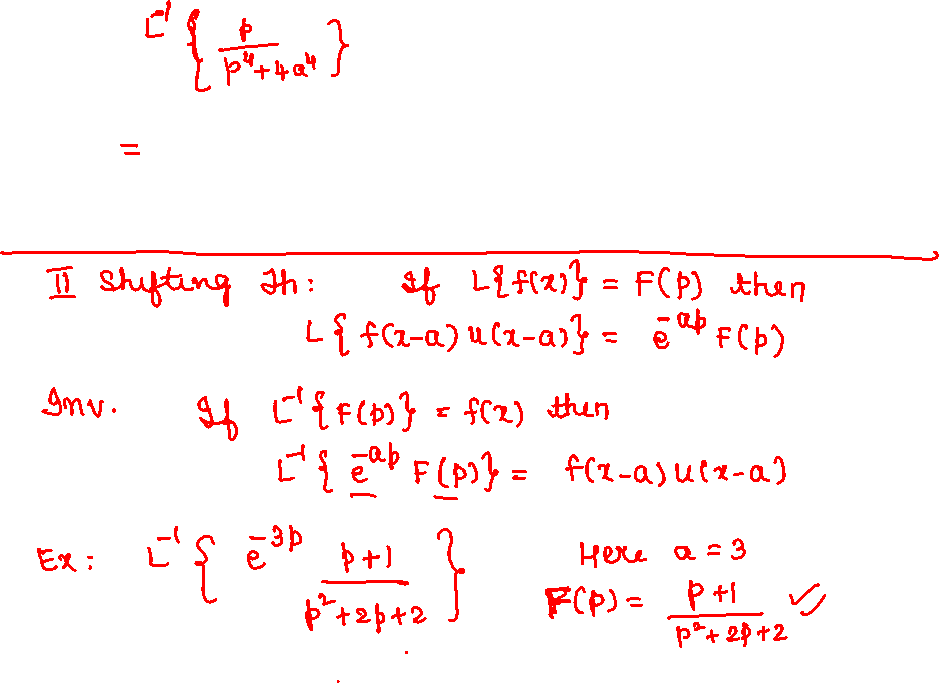 L⁻¹ { p / (p⁴ + 4a⁴) }
=
II Shifting Th: If L{f(x)} = F(p) then
L{ f(x-a) u(x-a)} = e^{-ap} F(p)
Inv. If L⁻¹{F(p)} = f(x) then
L⁻¹{ e^{-ap} F(p)} = f(x-a) u(x-a)
Ex: L⁻¹{ e^{-3p} (p+1) / (p²+2p+2) } Here a = 3
F(p) = (p+1) / (p²+2p+2) ✓